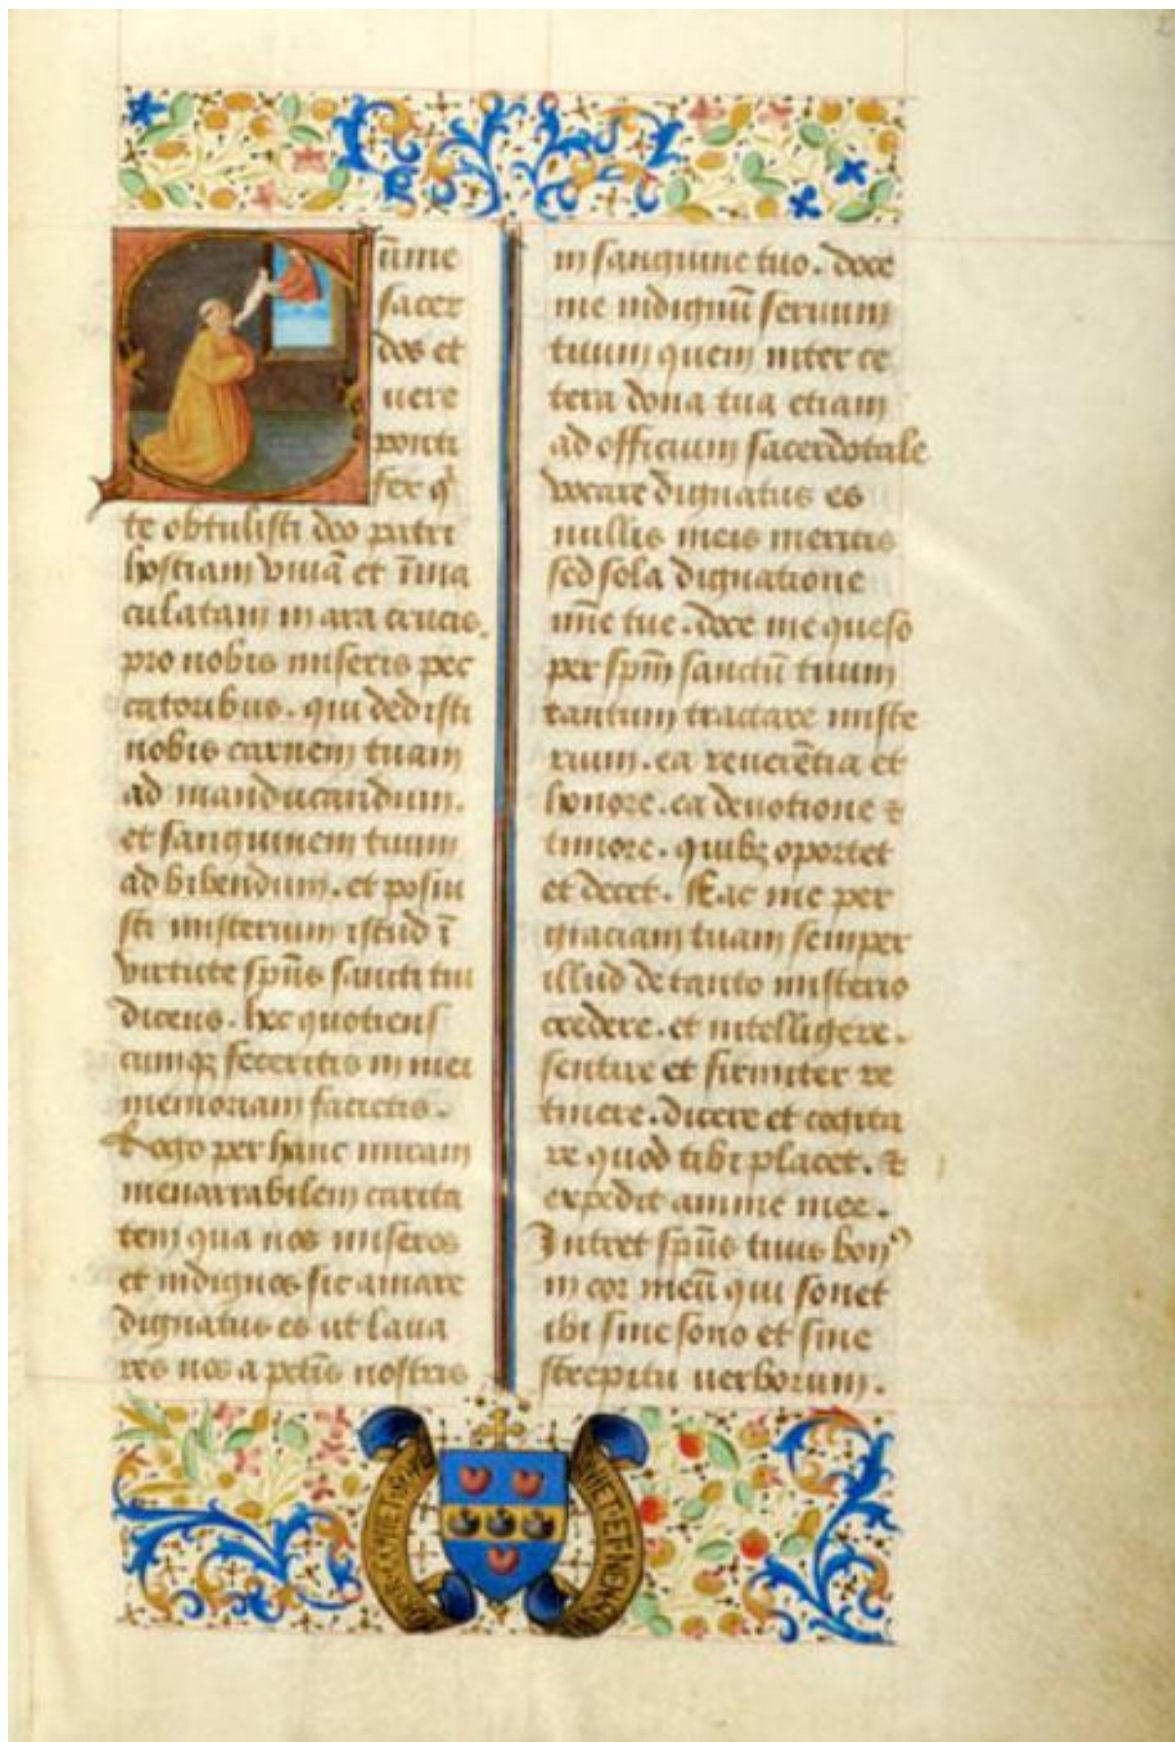 ūme
sacer
dos et
uere
ponti
fex q
te obtulisti deo patri
hostiam viuā et īma
culatam in ara crucis.
pro nobis miseris pec
catoribus. qui dedisti
nobis carnem tuam
ad manducandum.
et sanguinem tuum
ad bibendum. et posui
sti misterium istud ī
virtute spūs sancti tui
dicens. hec quotiens
cumqꝫ feceritis in mei
memoriam facietis.
Rogo per hanc miram
inenarrabilem carita
tem qua nos miseros
et indignos sic amare
dignatus es ut laua
res nos a pctīs nostris
in sanguine tuo. doce
me indignū seruum
tuum quem inter ce
tera dona tua etiam
ad officium sacerdotale
vocare dignatus es
nullis meis meritis
sed sola dignatione
mīe tue. doce me queso
per spm̄ sanctū tuum
tantum tractare miste
rium. ea reuerētia et
honore. ea deuotione ⁊
timore. quibꝫ oportet
et decet. Fac me per
graciam tuam semper
illud de tanto misterio
credere. et intelligere.
sentire et firmiter re
tinere. dicere et cogita
re quod tibi placet. ⁊
expedit anime mee.
Intret spūs tuus bonꝰ
in cor meū qui sonet
ibi sine sono et sine
strepitu uerborum.